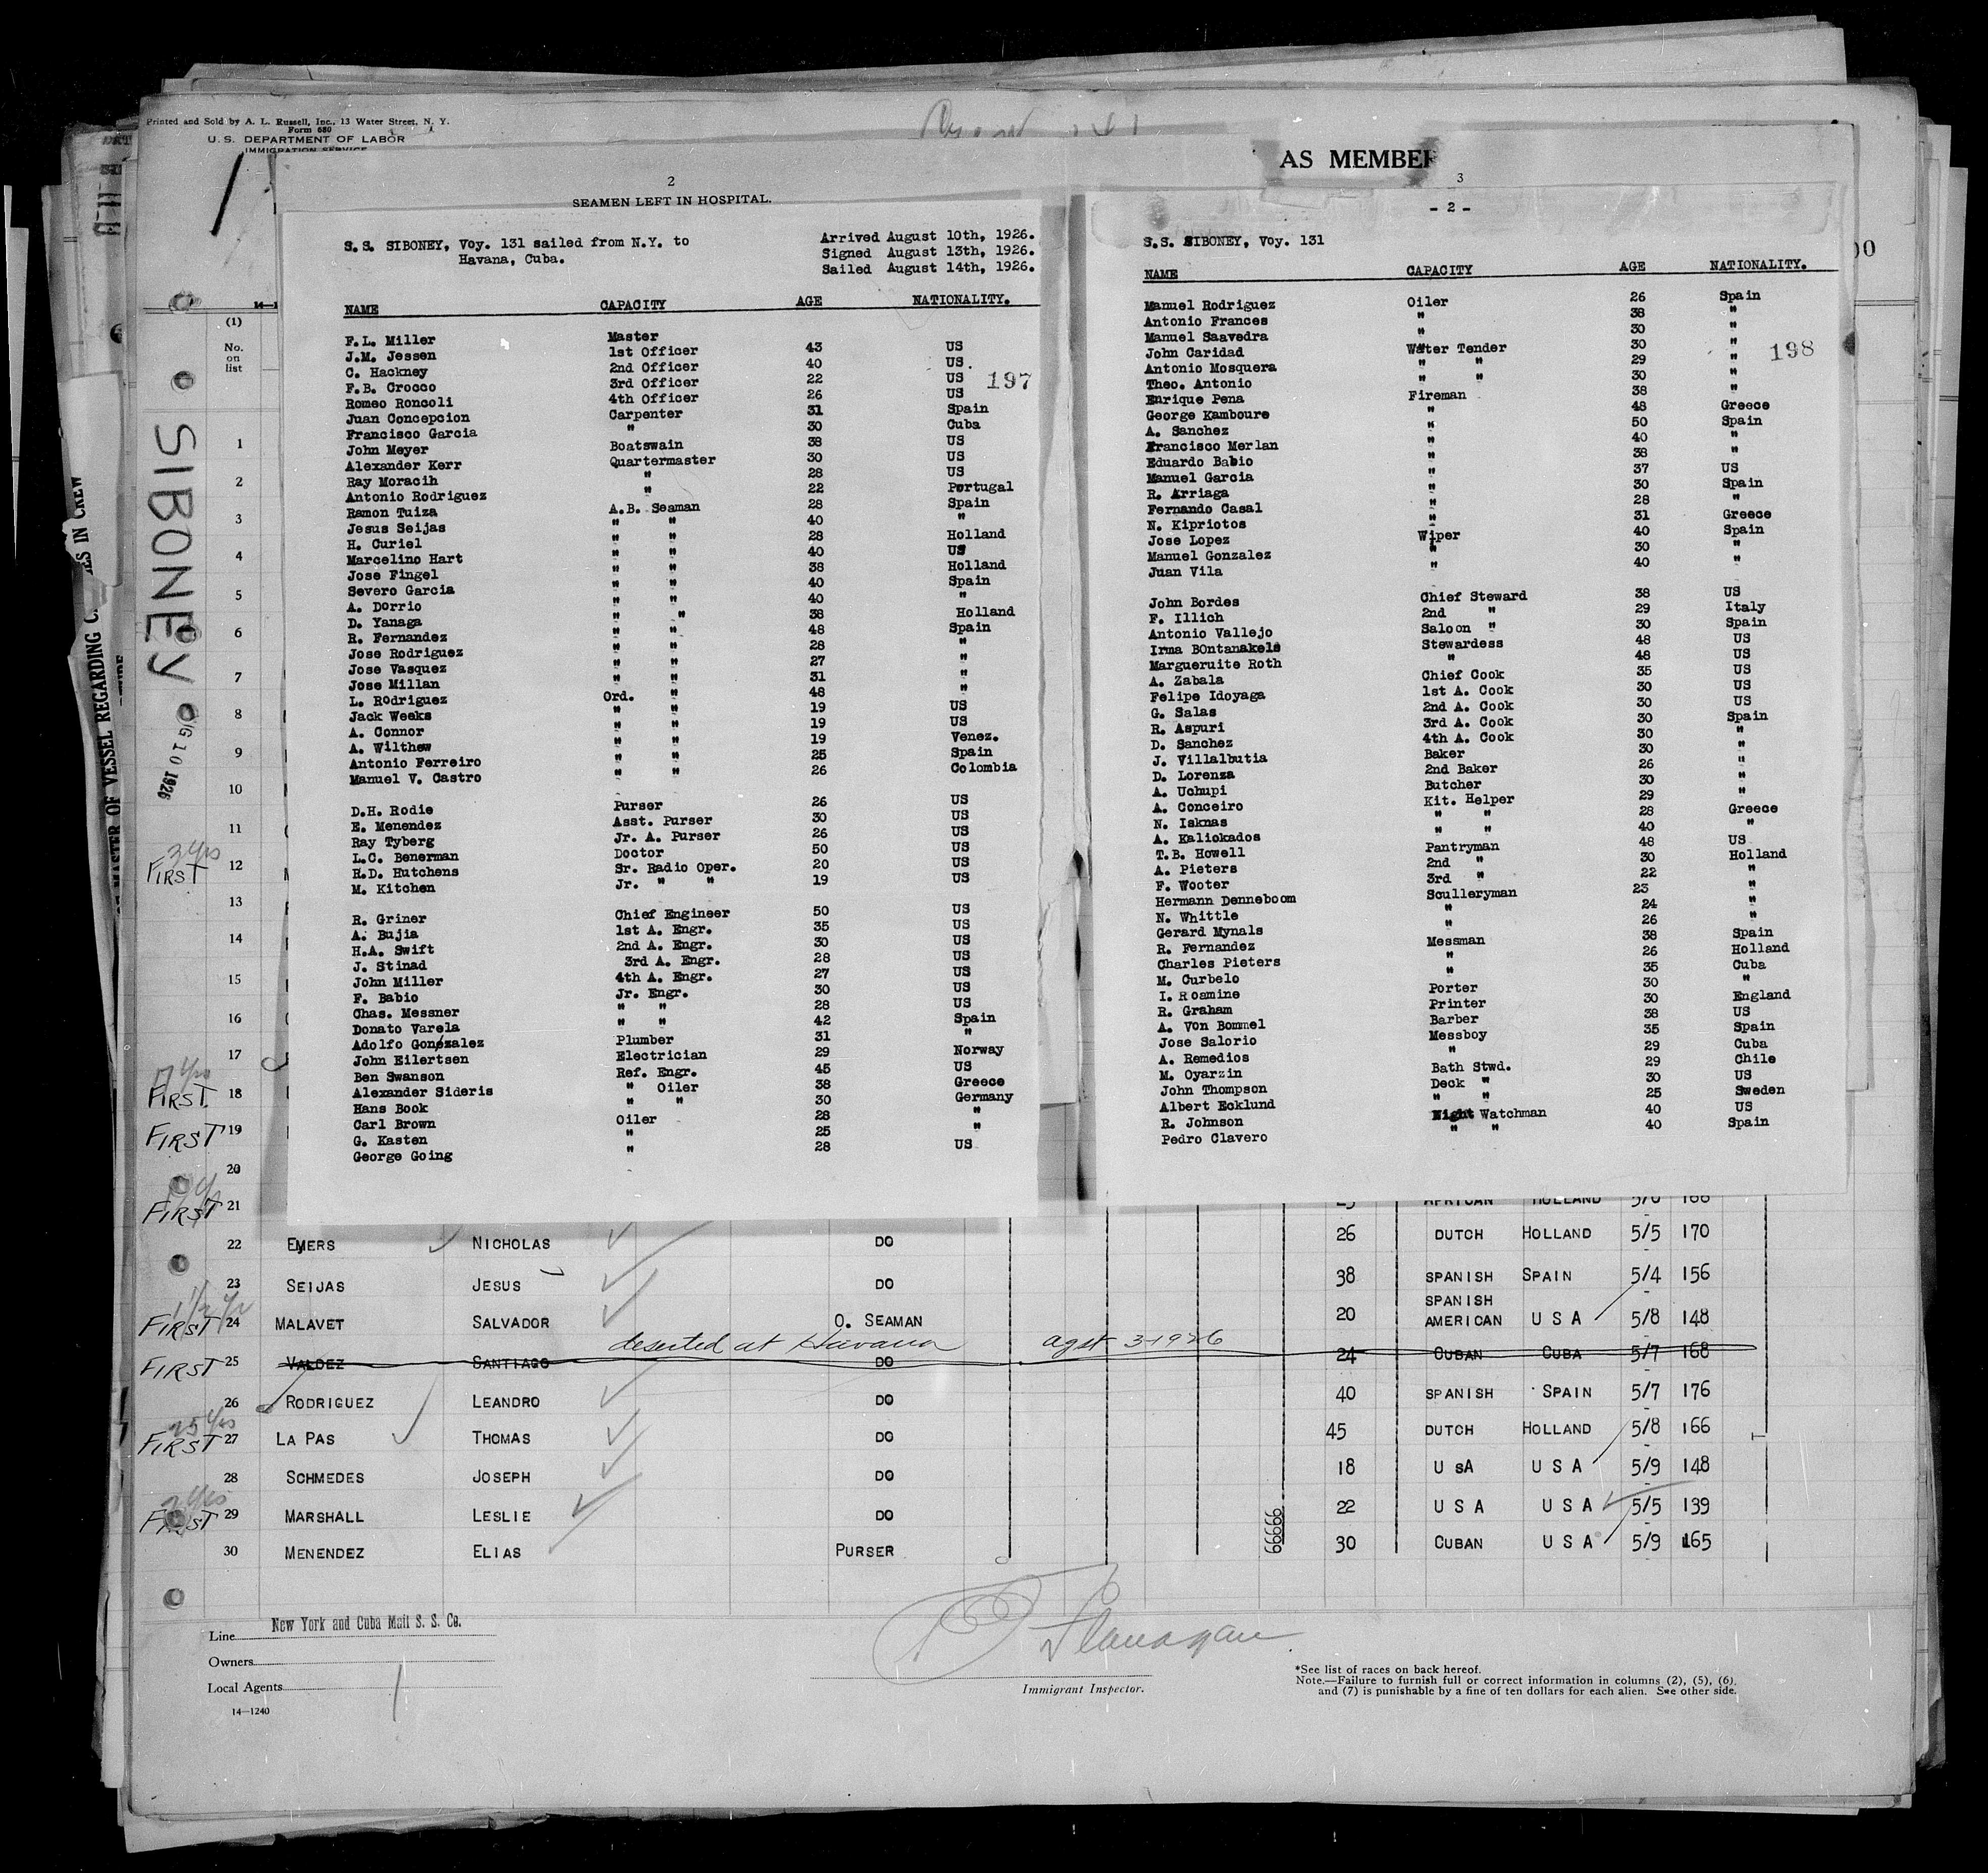 Printed and Sold by A. L. Russell, Inc., 13 Water Street, N. Y.
Form 680
U. S. DEPARTMENT OF LABOR
IMMIGRATION SERVICE
AS MEMBER
2
SEAMEN LEFT IN HOSPITAL.
S.S. SIBONEY, Voy. 131 sailed from N.Y. to
Havana, Cuba.
Arrived August 10th, 1926.
Signed August 13th, 1926.
Sailed August 14th, 1926.
NAME CAPACITY AGE NATIONALITY.
197
F.L. Miller Master
J.M. Jessen 1st Officer 43 US
C. Hackney 2nd Officer 40 US.
F.B. Crocco 3rd Officer 22 US
Romeo Roncoli 4th Officer 26 US
Juan Concepcion Carpenter 31 Spain
Francisco Garcia " 30 Cuba
John Meyer Boatswain 38 US
Alexander Kerr Quartermaster 30 US
Ray Moracih " 28 US
Antonio Rodriguez " 22 Portugal
Ramon Tuiza A.B. Seaman 28 Spain
Jesus Seijas " " 40 "
H. Curiel " " 28 Holland
Marcelino Hart " " 40 US
Jose Fingel " " 38 Holland
Severo Garcia " " 40 Spain
A. Dorrio " " 40 "
D. Yanaga " " 38 Holland
R. Fernandez " " 48 Spain
Jose Rodriguez " " 28 "
Jose Vasquez " " 27 "
Jose Millan " " 31 "
L. Rodriguez Ord. " 48 "
Jack Weeks " " 19 US
A. Connor " " 19 US
A. Wilthew " " 19 Venez.
Antonio Ferreiro " " 25 Spain
Manuel V. Castro " " 26 Colombia
D.H. Rodie Purser 26 US
E. Menendez Asst. Purser 30 US
Ray Tyberg Jr. A. Purser 26 US
L.C. Benerman Doctor 50 US
H.D. Hutchens Sr. Radio Oper. 20 US
M. Kitchen Jr. " " 19 US
R. Griner Chief Engineer 50 US
A. Bujia 1st A. Engr. 35 US
H.A. Swift 2nd A. Engr. 30 US
J. Stinad 3rd A. Engr. 28 US
John Miller 4th A. Engr. 27 US
F. Babio Jr. Engr. 30 US
Chas. Messner " " 28 US
Donato Varela " " 42 Spain
Adolfo Gonzalez Plumber 31 "
John Eilertsen Electrician 29 Norway
Ben Swanson Ref. Engr. 45 US
Alexander Sideris " Oiler 38 Greece
Hans Book " " 30 Germany
Carl Brown Oiler 28 "
G. Kasten " 25 "
George Going " 28 US
3
- 2 -
S.S. SIBONEY, Voy. 131
NAME CAPACITY AGE NATIONALITY.
198
Manuel Rodriguez Oiler 26 Spain
Antonio Frances " 38 "
Manuel Saavedra " 30 "
John Caridad Water Tender 30 "
Antonio Mosquera " " 29 "
Theo. Antonio " " 30 "
Enrique Pena Fireman 38 "
George Kamboure " 48 Greece
A. Sanchez " 50 Spain
Francisco Merlan " 40 "
Eduardo Babio " 38 "
Manuel Garcia " 37 US
R. Arriaga " 30 Spain
Fernando Casal " 28 "
N. Kipriotos " 31 Greece
Jose Lopez Wiper 40 Spain
Manuel Gonzalez " 30 "
Juan Vila " 40 "
John Bordes Chief Steward 38 US
F. Illich 2nd " 29 Italy
Antonio Vallejo Saloon " 30 Spain
Irma BOntanakels Stewardess 48 US
Margueruite Roth " 48 US
A. Zabala Chief Cook 35 US
Felipe Idoyaga 1st A. Cook 30 US
G. Salas 2nd A. Cook 30 US
R. Aspuri 3rd A. Cook 30 Spain
D. Sanchez 4th A. Cook 30 "
J. Villalbutia Baker 30 "
D. Lorenza 2nd Baker 26 "
A. Uchupi Butcher 30 "
A. Conceiro Kit. Helper 29 "
N. Isknas " " 28 Greece
A. Kaliokados " " 40 "
T.B. Howell Pantryman 48 US
A. Pieters 2nd " 30 Holland
F. Wooter 3rd " 22 "
Hermann Denneboom Sculleryman 23 "
N. Whittle " 24 "
Gerard Mynals " 26 "
R. Fernandez Messman 38 Spain
Charles Pieters " 26 Holland
M. Curbelo " 35 Cuba
I. Roamine Porter 30 "
R. Graham Printer 30 England
A. Von Bommel Barber 38 US
Jose Salorio Messboy 35 Spain
A. Remedios " 29 Cuba
M. Oyarzin Bath Stwd. 29 Chile
John Thompson Deck " 30 US
Albert Ecklund " " 25 Sweden
R. Johnson Night Watchman 40 US
Pedro Clavero " " 40 Spain
(1)
No.
on
list
SIBONEY
1
2
3
4
5
6
7
8
9
10
11
FIRST 12
13
14
15
16
17
FIRST. 18
FIRST 19
20
FIRST 21 AFRICAN HOLLAND
22 EMERS NICHOLAS DO 26 DUTCH HOLLAND 5/5 170
23 SEIJAS JESUS DO 38 SPANISH SPAIN 5/4 156
FIRST 24 MALAVET SALVADOR O. SEAMAN 20 SPANISH AMERICAN U S A 5/8 148
deserted at Havana agst 3-1926
FIRST 25 VALDEZ SANTIAGO DO 24 CUBAN CUBA 5/7 168
26 RODRIGUEZ LEANDRO DO 40 SPANISH SPAIN 5/7 176
FIRST 27 LA PAS THOMAS DO 45 DUTCH HOLLAND 5/8 166
28 SCHMEDES JOSEPH DO 18 U SA U S A 5/9 148
FIRST 29 MARSHALL LESLIE DO 22 U S A U S A 5/5 139
30 MENENDEZ ELIAS PURSER 30 CUBAN U S A 5/9 165
66666
Line New York and Cuba Mail S. S. Co.
Owners
Local Agents
14—1240
Flanagan
Immigrant Inspector.
*See list of races on back hereof.
Note.—Failure to furnish full or correct information in columns (2), (5), (6),
and (7) is punishable by a fine of ten dollars for each alien. See other side.